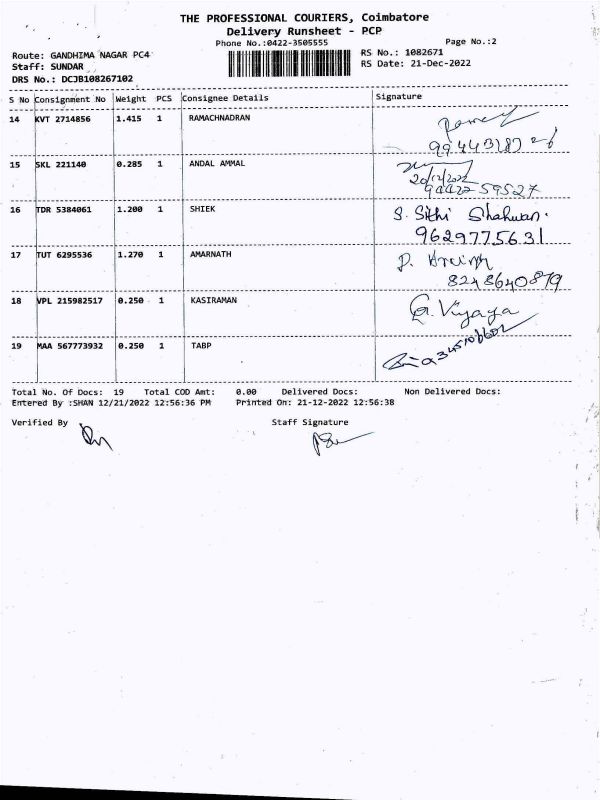 THE PROFESSIONAL COURIERS, Coimbatore
Delivery Runsheet - PCP
Phone No.:0422-3505555 Page No.:2
Route: GANDHIMA NAGAR PC4 RS No.: 1082671
Staff: SUNDAR RS Date: 21-Dec-2022
DRS No.: DCJB108267102
S No Consignment No Weight PCS Consignee Details Signature
14 KVT 2714856 1.415 1 RAMACHNADRAN
15 SKL 221140 0.285 1 ANDAL AMMAL
20/12/2022
94422 59527
16 TDR 5384061 1.200 1 SHIEK S. Sithi Shahwan.
9629775631
17 TUT 6295536 1.270 1 AMARNATH
8248640879
18 VPL 215982517 0.250 1 KASIRAMAN G. Vijaya
19 MAA 567773932 0.250 1 TABP
Total No. Of Docs: 19 Total COD Amt: 0.00 Delivered Docs: Non Delivered Docs:
Entered By :SHAN 12/21/2022 12:56:36 PM Printed On: 21-12-2022 12:56:38
Verified By Staff Signature